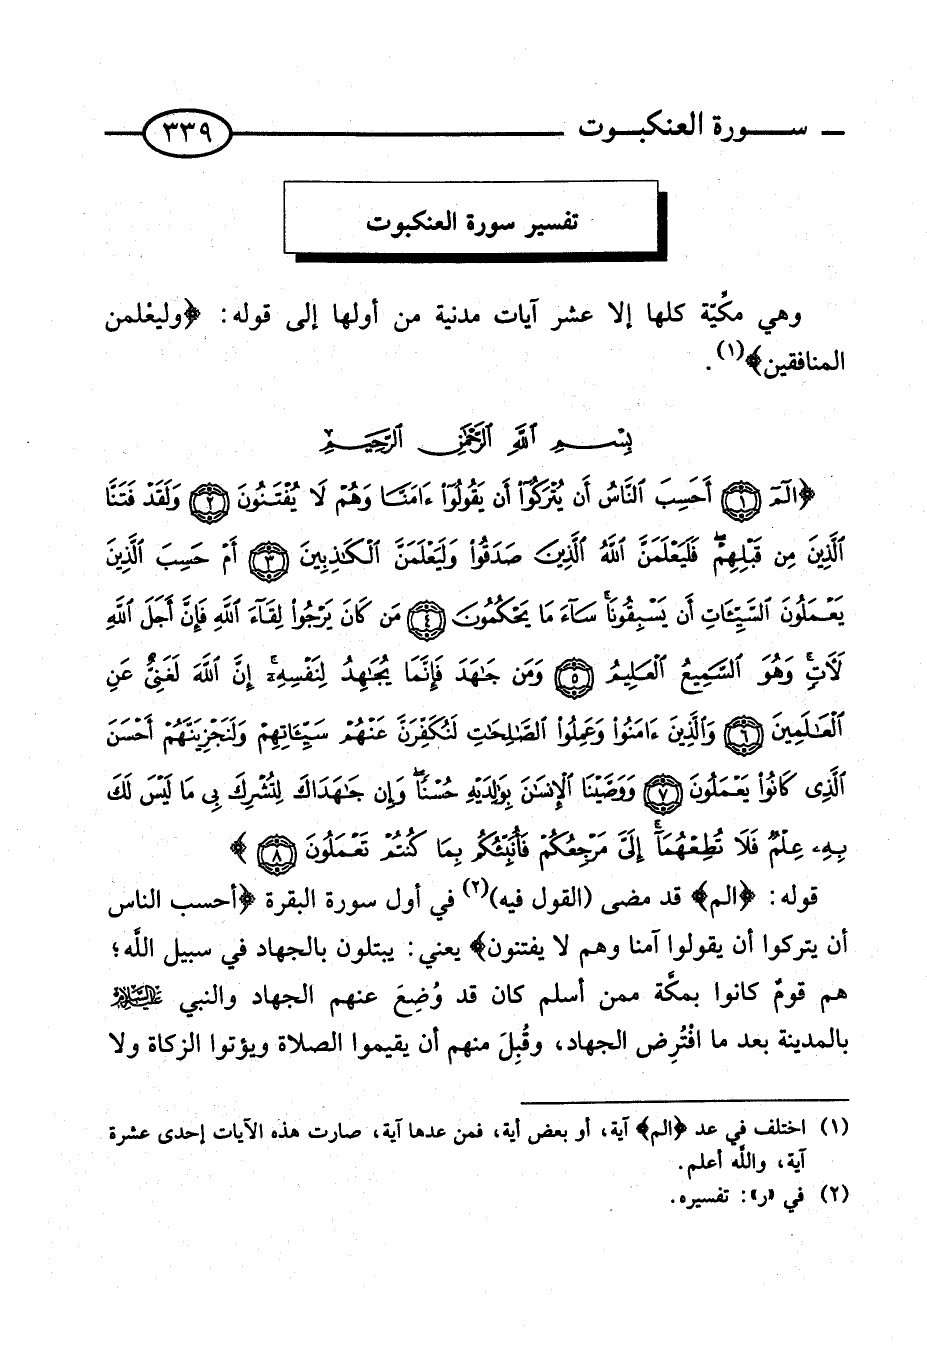 سورة العنكبوت
٣٣٩
تفسير سورة العنكبوت
وهي مكِّيّة كلها إلا عشر آيات مدنية من أولها إلى قوله: ﴿وليعْلمن
المنافقين﴾(١).
بِسْمِ اللَّهِ الرَّحْمَٰنِ الرَّحِيمِ
﴿الٓمٓ ١ أَحَسِبَ ٱلنَّاسُ أَن يُتْرَكُوٓا۟ أَن يَقُولُوٓا۟ ءَامَنَّا وَهُمْ لَا يُفْتَنُونَ ٢ وَلَقَدْ فَتَنَّا
ٱلَّذِينَ مِن قَبْلِهِمْ ۖ فَلَيَعْلَمَنَّ ٱللَّهُ ٱلَّذِينَ صَدَقُوا۟ وَلَيَعْلَمَنَّ ٱلْكَٰذِبِينَ ٣ أَمْ حَسِبَ ٱلَّذِينَ
يَعْمَلُونَ ٱلسَّيِّـَٔاتِ أَن يَسْبِقُونَا ۚ سَآءَ مَا يَحْكُمُونَ ٤ مَن كَانَ يَرْجُوا۟ لِقَآءَ ٱللَّهِ فَإِنَّ أَجَلَ ٱللَّهِ
لَـَٔاتٍ ۚ وَهُوَ ٱلسَّمِيعُ ٱلْعَلِيمُ ٥ وَمَن جَٰهَدَ فَإِنَّمَا يُجَٰهِدُ لِنَفْسِهِۦٓ ۚ إِنَّ ٱللَّهَ لَغَنِىٌّ عَنِ
ٱلْعَٰلَمِينَ ٦ وَٱلَّذِينَ ءَامَنُوا۟ وَعَمِلُوا۟ ٱلصَّٰلِحَٰتِ لَنُكَفِّرَنَّ عَنْهُمْ سَيِّـَٔاتِهِمْ وَلَنَجْزِيَنَّهُمْ أَحْسَنَ
ٱلَّذِى كَانُوا۟ يَعْمَلُونَ ٧ وَوَصَّيْنَا ٱلْإِنسَٰنَ بِوَٰلِدَيْهِ حُسْنًا ۖ وَإِن جَٰهَدَاكَ لِتُشْرِكَ بِى مَا لَيْسَ لَكَ
بِهِۦ عِلْمٌ فَلَا تُطِعْهُمَآ ۚ إِلَىَّ مَرْجِعُكُمْ فَأُنَبِّئُكُم بِمَا كُنتُمْ تَعْمَلُونَ ٨ ﴾
قوله: ﴿الم﴾ قد مضى (القول فيه)(٢) في أول سورة البقرة ﴿أحسب الناس
أن يتركوا أن يقولوا آمنا وهم لا يفتنون﴾ يعني: يبتلون بالجهاد في سبيل اللَّه؛
هم قومٌ كانوا بمكَّة ممن أسلم كان قد وُضِعَ عنهم الجهاد والنبي عليه السلام
بالمدينة بعد ما افْتُرِض الجهاد، وقُبِلَ منهم أن يقيموا الصلاة ويؤتوا الزكاة ولا
(١) اختلف في عد ﴿الم﴾ آية، أو بعض أية، فمن عدها آية، صارت هذه الآيات إحدى عشرة
آية، واللَّه أعلم.
(٢) في «ر»: تفسيره.